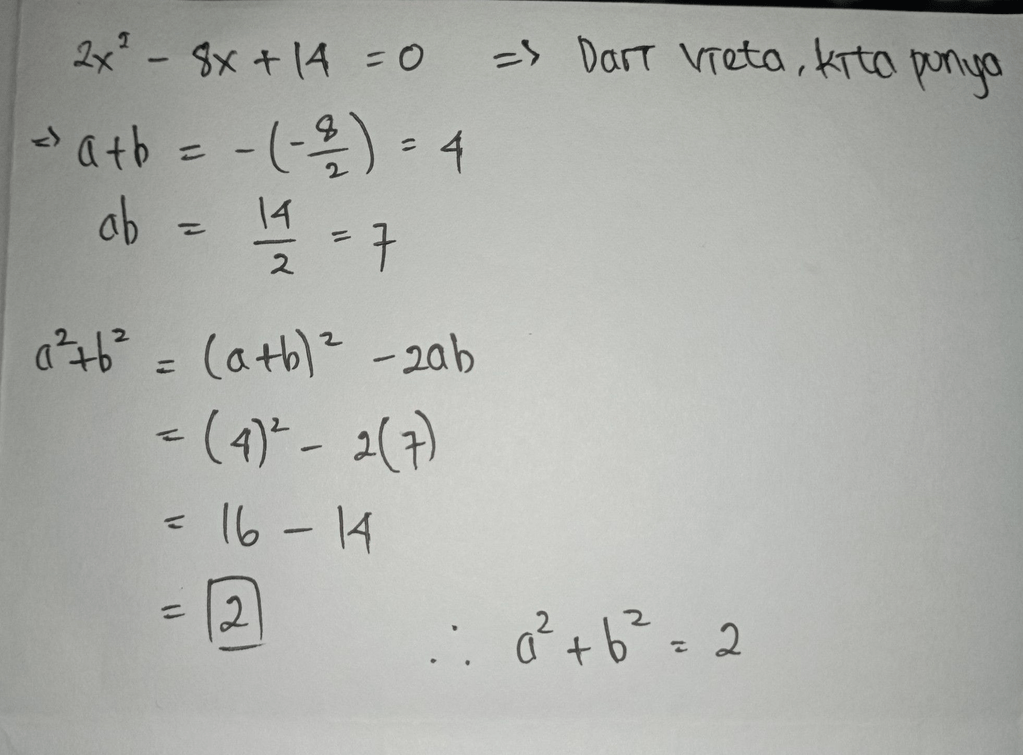 2x² - 8x + 14 = 0 => Dari Vieta, kita punya
=> a+b = -(-8/2) = 4
ab = 14/2 = 7
a²+b² = (a+b)² - 2ab
= (4)² - 2(7)
= 16 - 14
= 2
∴ a² + b² = 2